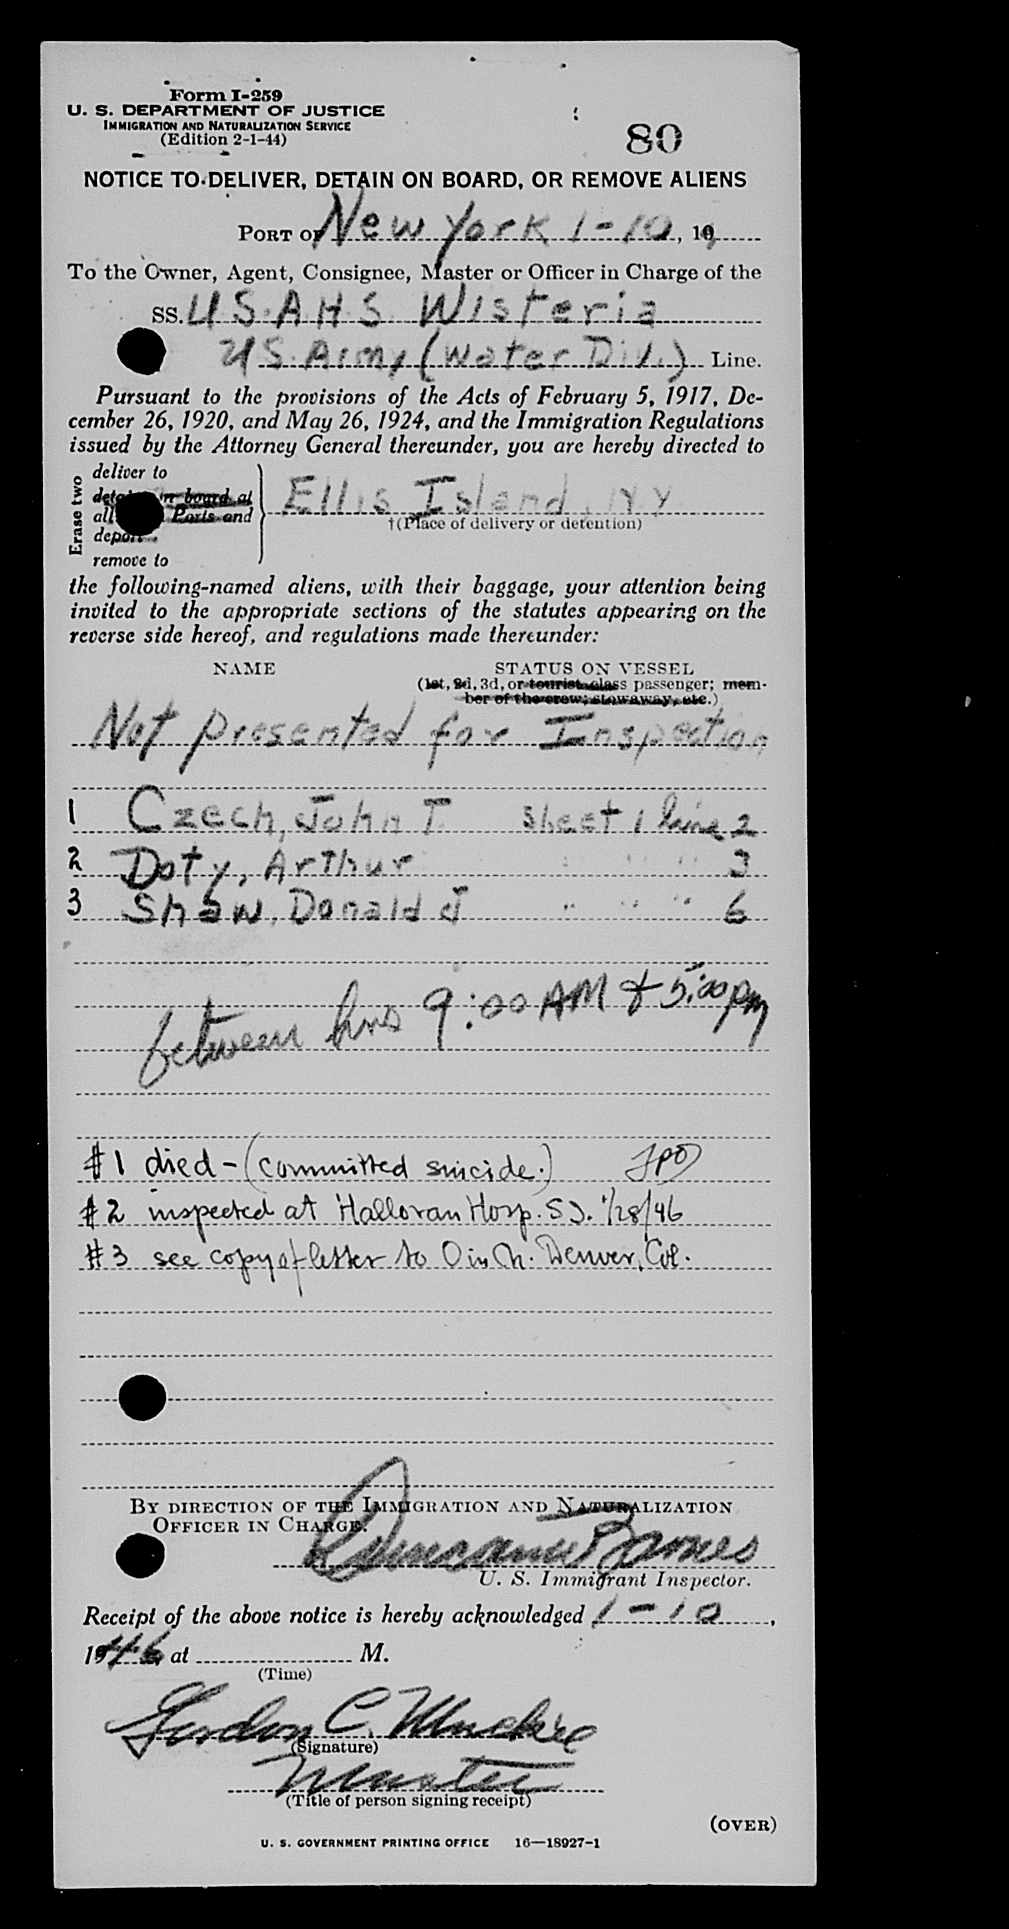 Form I-259
U. S. DEPARTMENT OF JUSTICE
IMMIGRATION AND NATURALIZATION SERVICE
(Edition 2-1-44)
80
NOTICE TO DELIVER, DETAIN ON BOARD, OR REMOVE ALIENS
PORT OF New York 1-10, 19
To the Owner, Agent, Consignee, Master or Officer in Charge of the
SS. U.S.A.H.S. Wisteria
US. Army (Water Div.) Line.
Pursuant to the provisions of the Acts of February 5, 1917, De-
cember 26, 1920, and May 26, 1924, and the Immigration Regulations
issued by the Attorney General thereunder, you are hereby directed to
Erase two
deliver to
detain on board at
all Ports and
deport
remove to
Ellis Island, N.Y.
†(Place of delivery or detention)
the following-named aliens, with their baggage, your attention being
invited to the appropriate sections of the statutes appearing on the
reverse side hereof, and regulations made thereunder:
NAME STATUS ON VESSEL
(1st, 2d, 3d, or tourist class passenger; mem-
ber of the crew; stowaway, etc.)
Not presented for Inspection
1 Czech, John T. Sheet 1 line 2
2 Doty, Arthur " " " " 3
3 Shaw, Donald J " " " " 6
between hrs 9:00 AM & 5:00 pm
#1 died - (committed suicide.)
#2 inspected at Halloran Hosp. S.I. 1/28/46
#3 see copy of letter to O in Ch. Denver, Col.
BY DIRECTION OF THE IMMIGRATION AND NATURALIZATION
OFFICER IN CHARGE.
Barnes
U. S. Immigrant Inspector.
Receipt of the above notice is hereby acknowledged 1-10,
1946 at M.
(Time)
Gordon C. Mackie
(Signature)
Master
(Title of person signing receipt)
(OVER)
U. S. GOVERNMENT PRINTING OFFICE 16—18927-1